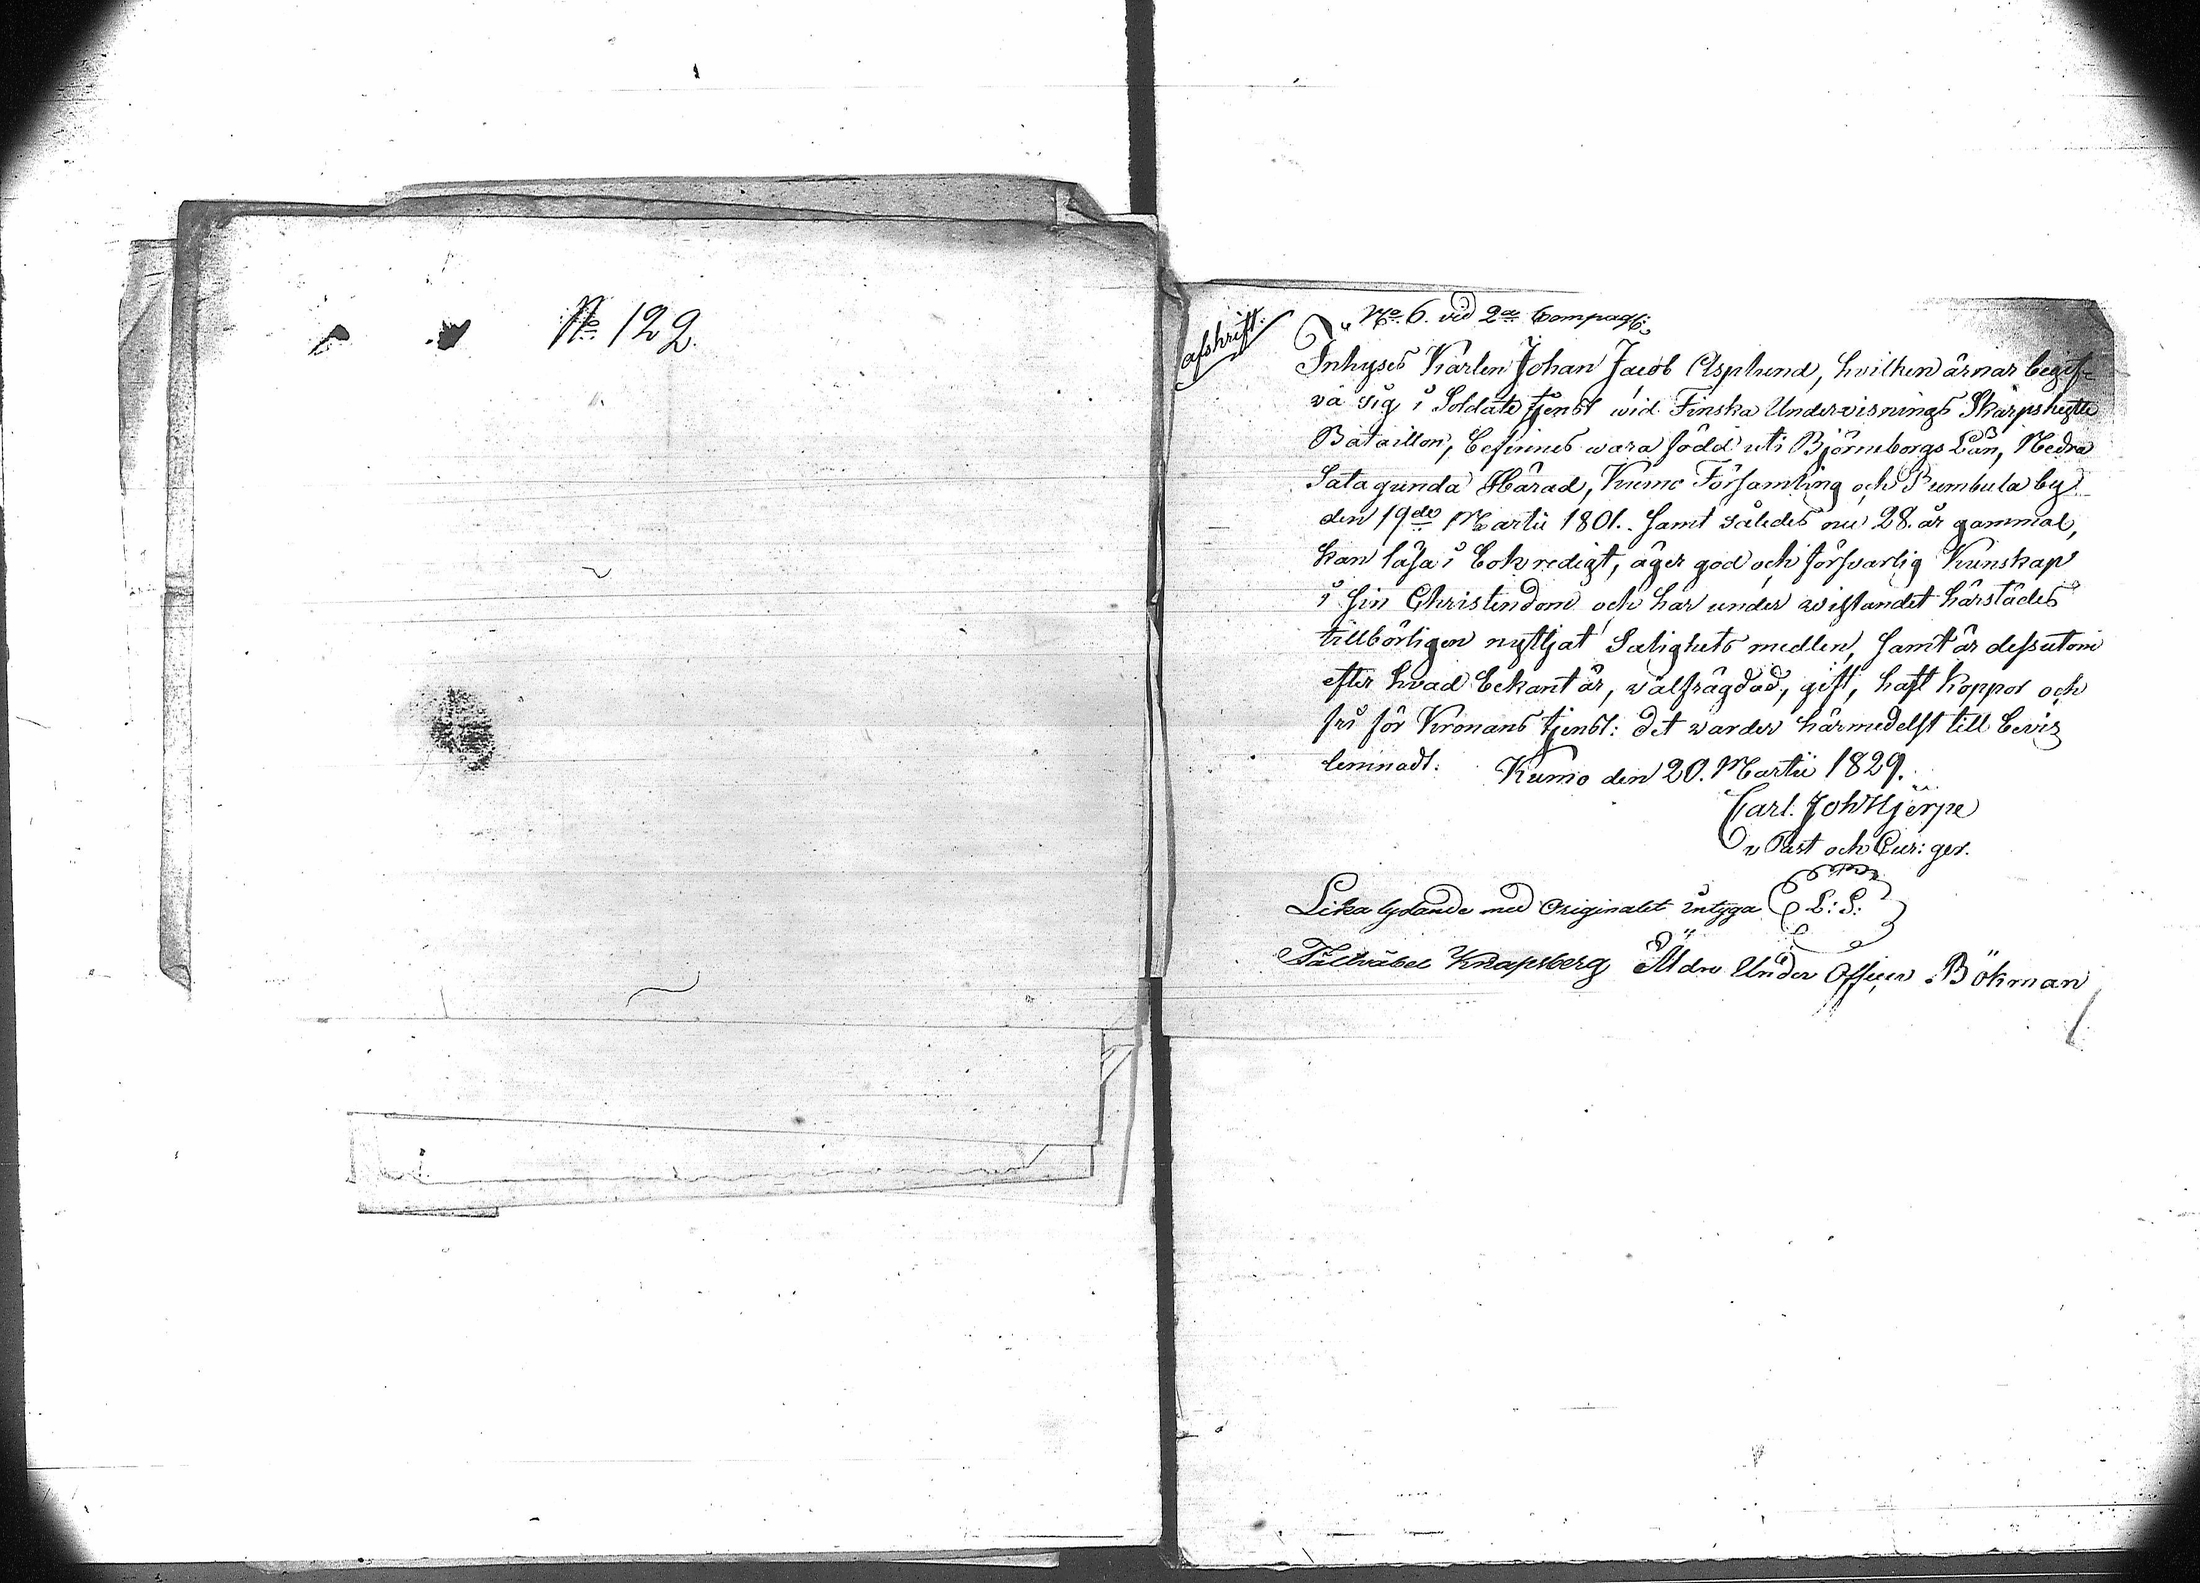 No 122.
afskrift.
No 6. vid 2a Compag:
Inhyses Karlen Johan Jacob Asplund, hvilken ärnar begif-
va sig i Soldate tjenst wid Finska Undervisnings Skarpskytte
Bataillon, befinnes wara född uti Björneborgs Län, Nedra
Satagunda Härad, Kumo Församling och Pumbula by
den 19de Martii 1801. samt således nu 28. år gammal,
kan läsa i bok redigt, äger god och försvarlig Kunskap
i sin Christendom och har under wistandet härstädes
tillbörligen nyttjat Salighets medlen, samt är dessutom
efter hvad bekant är, wälfrägdad, gift, haft koppor och
fri för Kronans tjenst: det warder härmedelst till bevis
lemnadt. Kumo den 20. Martii 1829.
Carl. Joh Hjerpe
v Past och Cur: ger.
Lika lydande med Originalet intyga L: S:
Fältväbel Knapsberg Äldre Under Officer Bökman